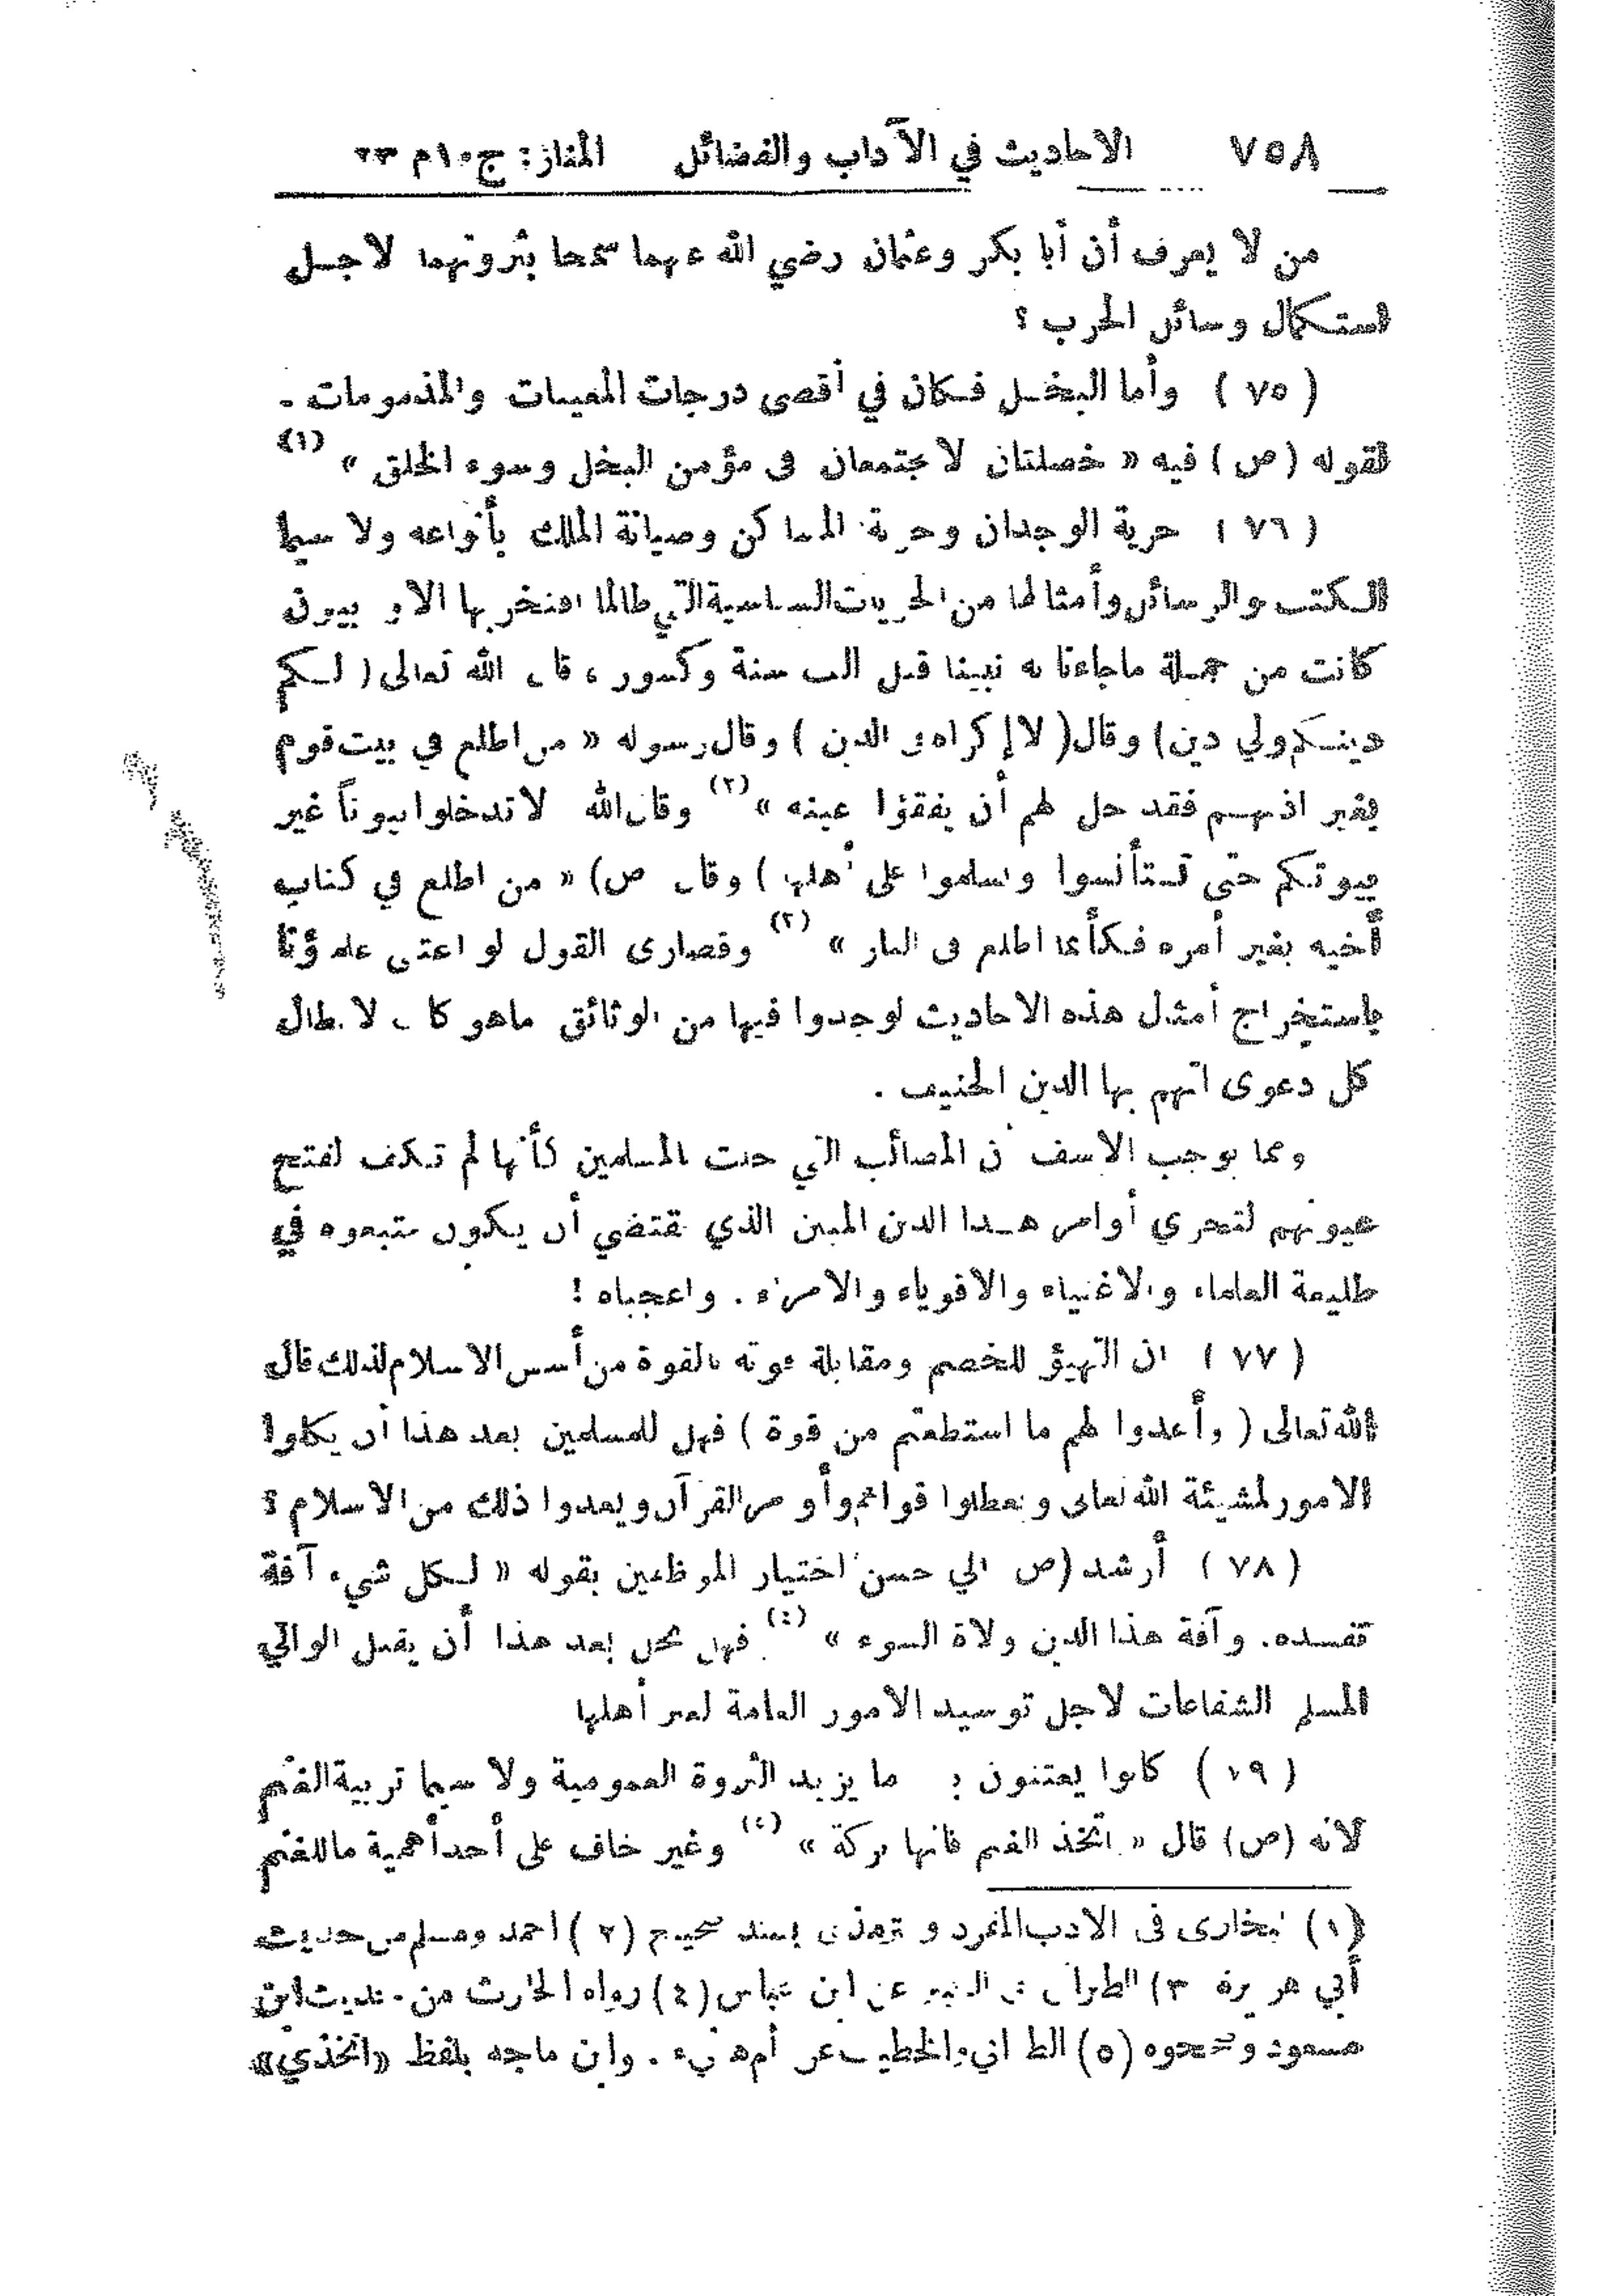 ٧٥٨ الاحاديث في الآداب والفضائل المنار: ج١٠م ٢٣
من لا يعرف أن أبا بكر وعثمان رضي الله عنهما سمحا بثروتهما لاجل
استكمال وسائل الحرب ؟
( ٧٥ ) وأما البخل فكان في أقصى درجات المعيبات والمذمومات ـ
لقوله (ص) فيه « خصلتان لا يجتمعان في مؤمن البخل وسوء الخلق » (١)
( ٧٦ ) حرية الوجدان وحرية المساكن وصيانة الملك بأنواعه ولا سيما
الكتب والرسائل وأمثالها من الحريات السياسية التي طالما افتخر بها الاوربيون
كانت من جملة ماجاءنا به نبينا قبل الف سنة وكسور ، قال الله تعالى ( لكم
دينكم ولي دين) وقال ( لا إكراه في الدين ) وقال رسوله « من اطلع في بيت قوم
بغير اذنهم فقد حل لهم أن يفقؤا عينه » (٢) وقال الله لا تدخلوا بيوتاً غير
بيوتكم حتى تستأنسوا وتسلموا على أهلها ) وقال ص) « من اطلع في كتاب
أخيه بغير أمره فكأنما اطلع في النار » (٣) وقصارى القول لو اعتنى علماؤنا
باستخراج أمثال هذه الاحاديث لوجدوا فيها من الوثائق ماهو كاف لابطال
كل دعوى اتهم بها الدين الحنيف .
ومما يوجب الاسف أن المصائب التي حلت بالمسلمين كأنها لم تكف لفتح
عيونهم لتحري أوامر هذا الدين المبين الذي يقتضي أن يكون متبعوه في
طليعة العلماء والاغنياء والاقوياء والامراء . واعجباه !
( ٧٧ ) ان التهيؤ للخصم ومقابلة قوته بالقوة من أسس الاسلام لذلك قال
الله تعالى ( وأعدوا لهم ما استطعتم من قوة ) فهل للمسلمين بعد هذا أن يكلوا
الامور لمشيئة الله تعالى ويعطلوا قواهم وأوامر القرآن ويعدوا ذلك من الاسلام ؟
( ٧٨ ) أرشد (ص الى حسن اختيار الموظفين بقوله « لكل شيء آفة
تفسده. وآفة هذا الدين ولاة السوء » (٤) فهل يحل بعد هذا أن يقبل الوالي
المسلم الشفاعات لاجل توسيد الامور العامة لغير أهلها
( ٧٩ ) كانوا يعتنون بـ ما يزيد الثروة العمومية ولا سيما تربية الغنم
لانه (ص) قال « اتخذ الغنم فانها بركة » (٤) وغير خاف على أحد أهمية ماللغنم
(١) البخارى فى الادب المفرد والترمذي بسند صحيح (٢) احمد ومسلم من حديث
أبي هريرة ٣) الطبراني في الكبير عن ابن عباس (٤) رواه الحارث من حديث ابن
مسعود وصححوه (٥) الطبراني والخطيب عن أم هانيء . وابن ماجه بلفظ «اتخذي»